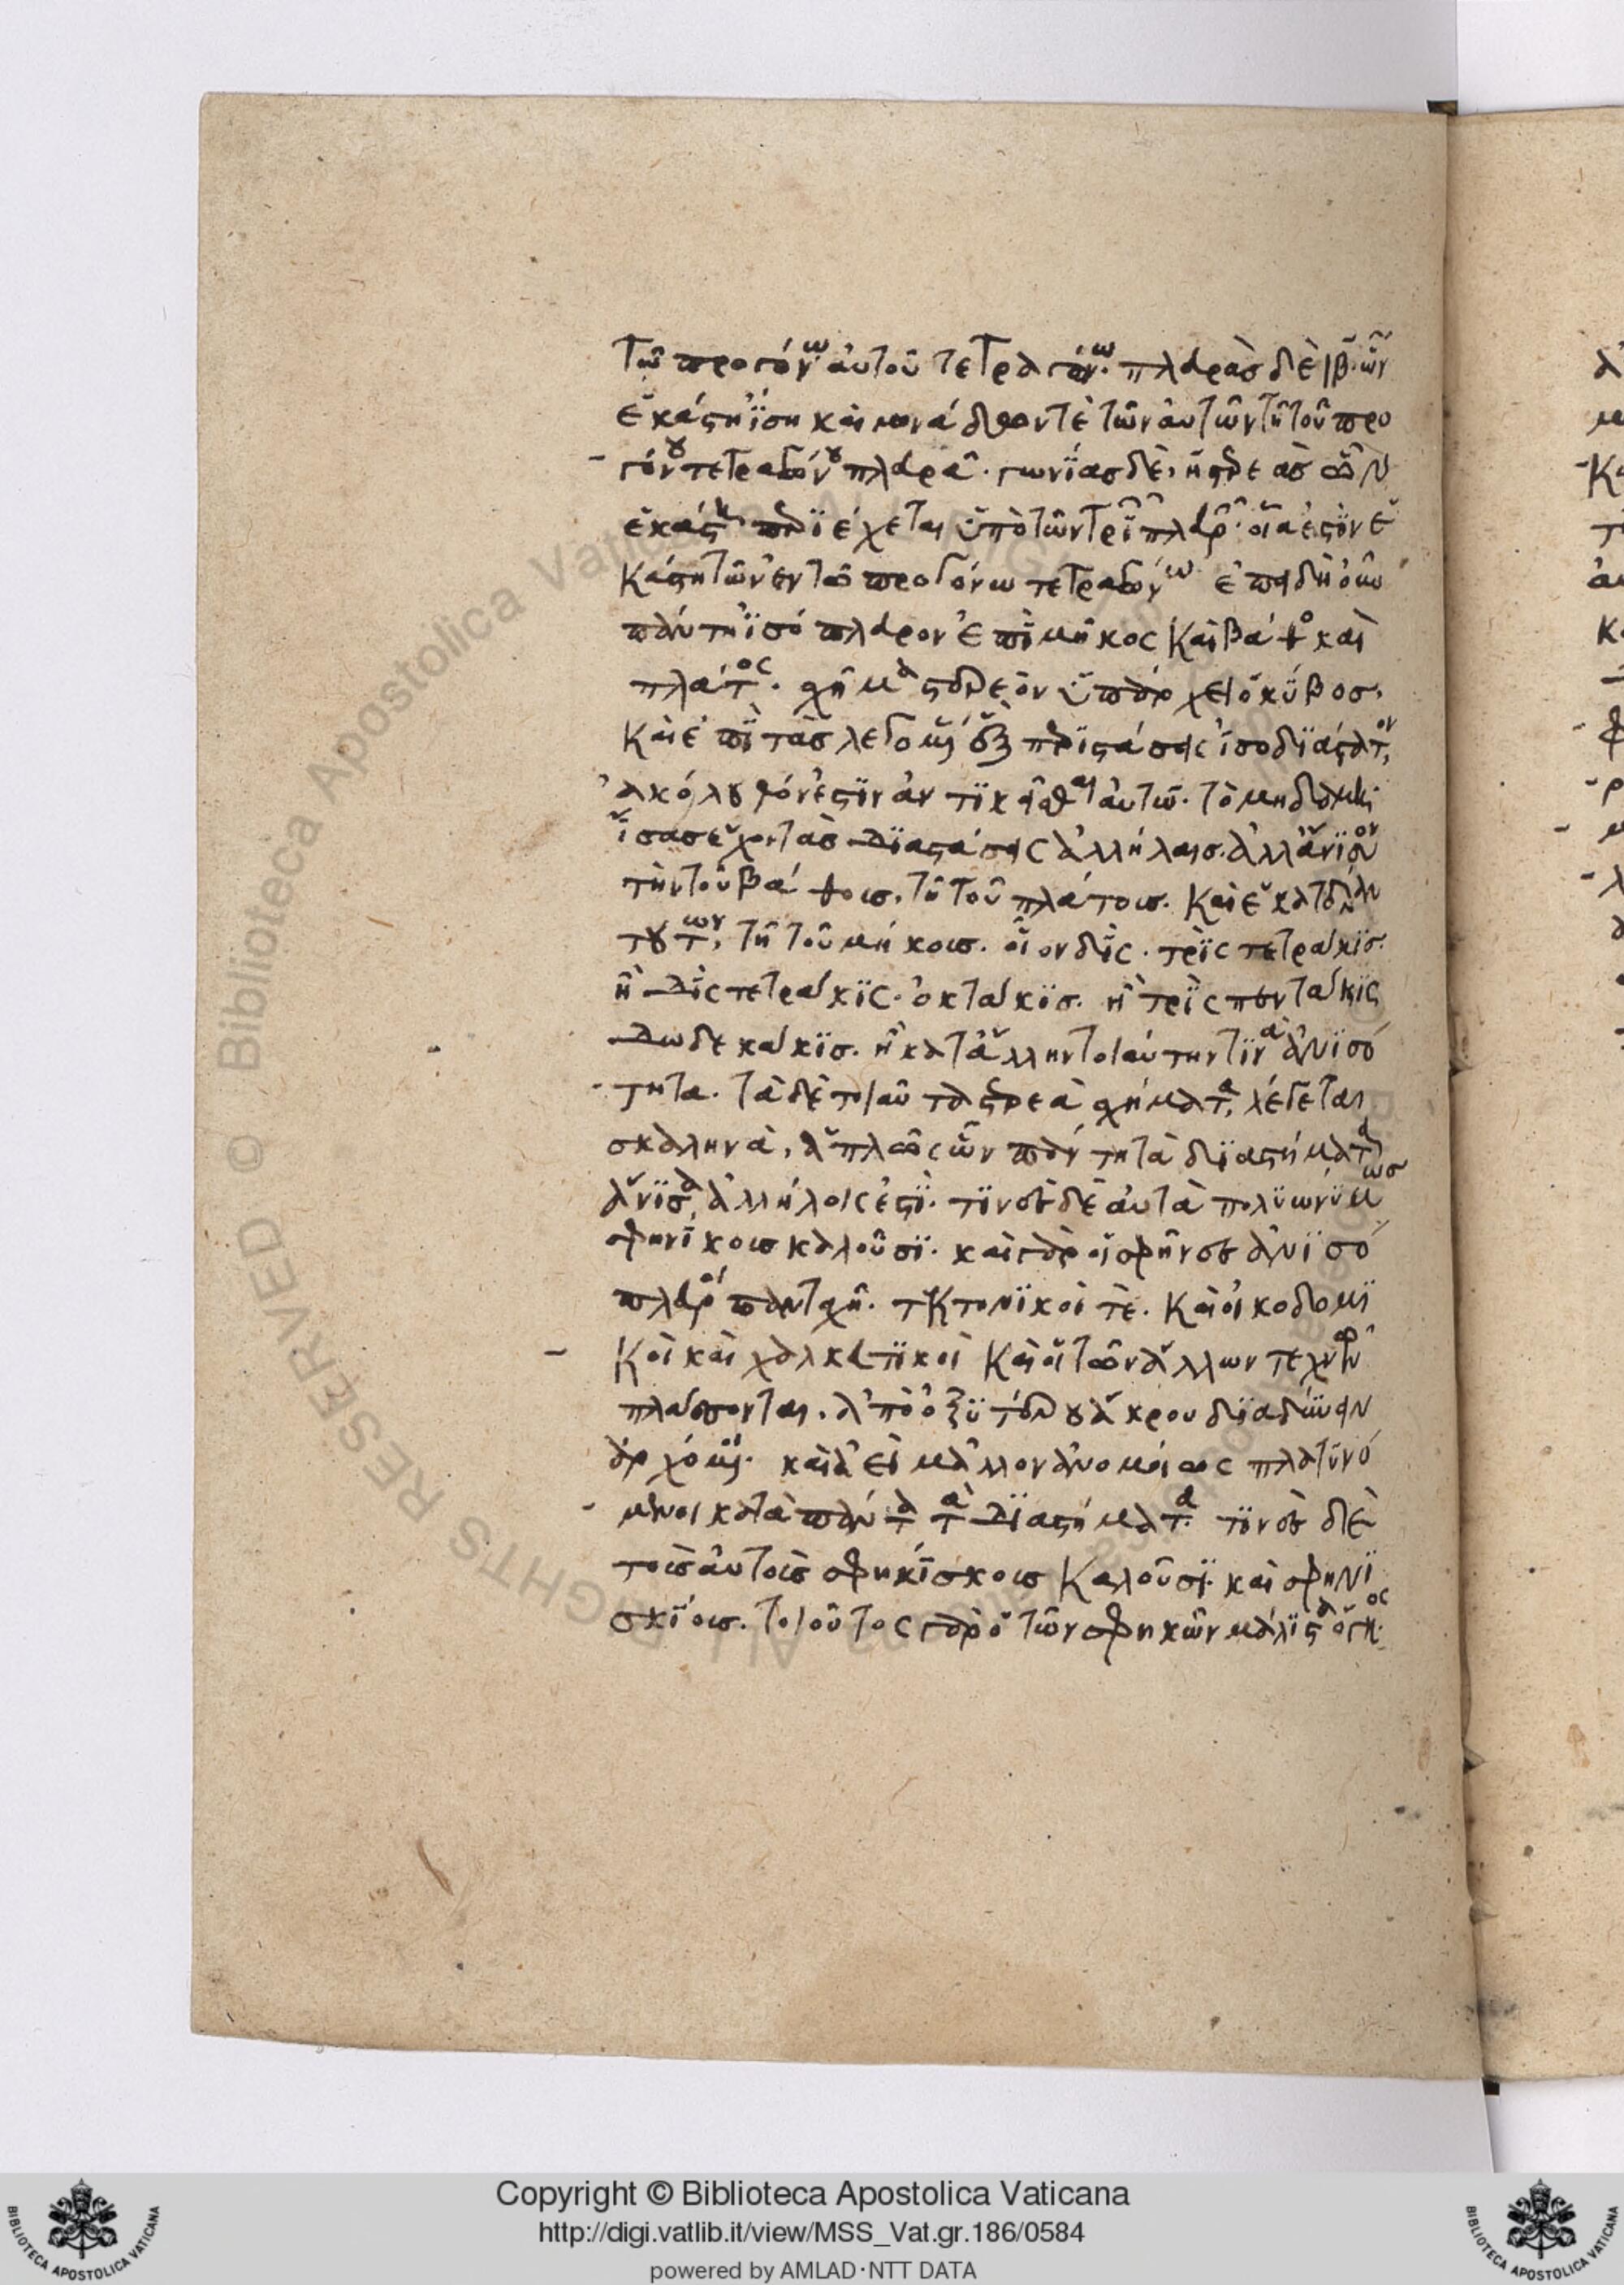 τῶ προγόνω αὐτοῦ τετραγώνω. πλευρὰς δὲ ιβ. ὧν
ἑκάστη ἴση καὶ μονάδων τὲ τῶν αὐτῶν τῆ τοῦ προ
γόνου τετραγώνου πλευρᾶ. γωνίας δὲ, στερεὰς ὧν
ἑκάστη περιέχεται ὑπὸ τῶν τριῶν πλευρῶν. οἷα ἐστὶν ἑ
κάστη τῶν ἐν τῶ προγόνω τετραγώνω ἐπειδὴ οὖν
πάντη ἰσόπλευρον ἐπὶ μῆκος καὶ βάθος καὶ
πλάτος. σχῆμα στερεὸν ὑπάρχει ὁ κύβος.
καὶ ἐπὶ τὰς λεγομένας ἓξ περιστάσεις ἰσοδιάστατον,
ἀκόλουθόν ἐστιν ἀντικεῖσθαι αὐτῶ. τὸ μηδαμῆ
ἴσας ἔχον τὰς διαστάσεις ἀλλήλαις. ἀλλ' ἄνισον
τὴν τοῦ βάθους, τῆ τοῦ πλάτους. καὶ ἑκατέραν
τούτων, τῆ τοῦ μήκους. οἷον δὶς. τρὶς τετράκις.
ἢ δὶς τετράκις. ὀκτάκις. ἢ τρὶς πεντάκις
δωδεκάκις. ἢ κατ' ἄλλην τοιαύτην τινὰ ἀνισό
τητα. τὰ δὲ τοιαῦτα στερεὰ σχήματα, λέγεται
σκαληνὰ, ἁπλῶς ὧν πάντη τὰ διαστήματα
ἄνισα ἀλλήλοις ἐστί. τινὲς δὲ αὐτὰ πολυωνύμως
σφηνίσκους καλοῦσι. καὶ γὰρ οἱ σφῆνες ἀνισό
πλευροι πανταχῆ. τεκτονικοί τε. καὶ οἰκοδομι
κοὶ καὶ χαλκευτικοὶ καὶ οἱ τῶν ἄλλων τεχνῶν
πλάσσονται. ἀπὸ ὀξυτέρου ἄκρου διαδύνειν
ἀρχόμενοι. καὶ ἀεὶ μᾶλλον ἀνομοίως πλατυνό
μενοι κατὰ πάντα τὰ διαστήματα. τινὲς δὲ
τοὺς αὐτοὺς σφηκίσκους καλοῦσι. καὶ σφηνι
σκίους. τοιοῦτος γὰρ ὁ τῶν σφηκῶν μάλιστα ὄγκος.
Copyright © Biblioteca Apostolica Vaticana
http://digi.vatlib.it/view/MSS_Vat.gr.186/0584
powered by AMLAD·NTT DATA